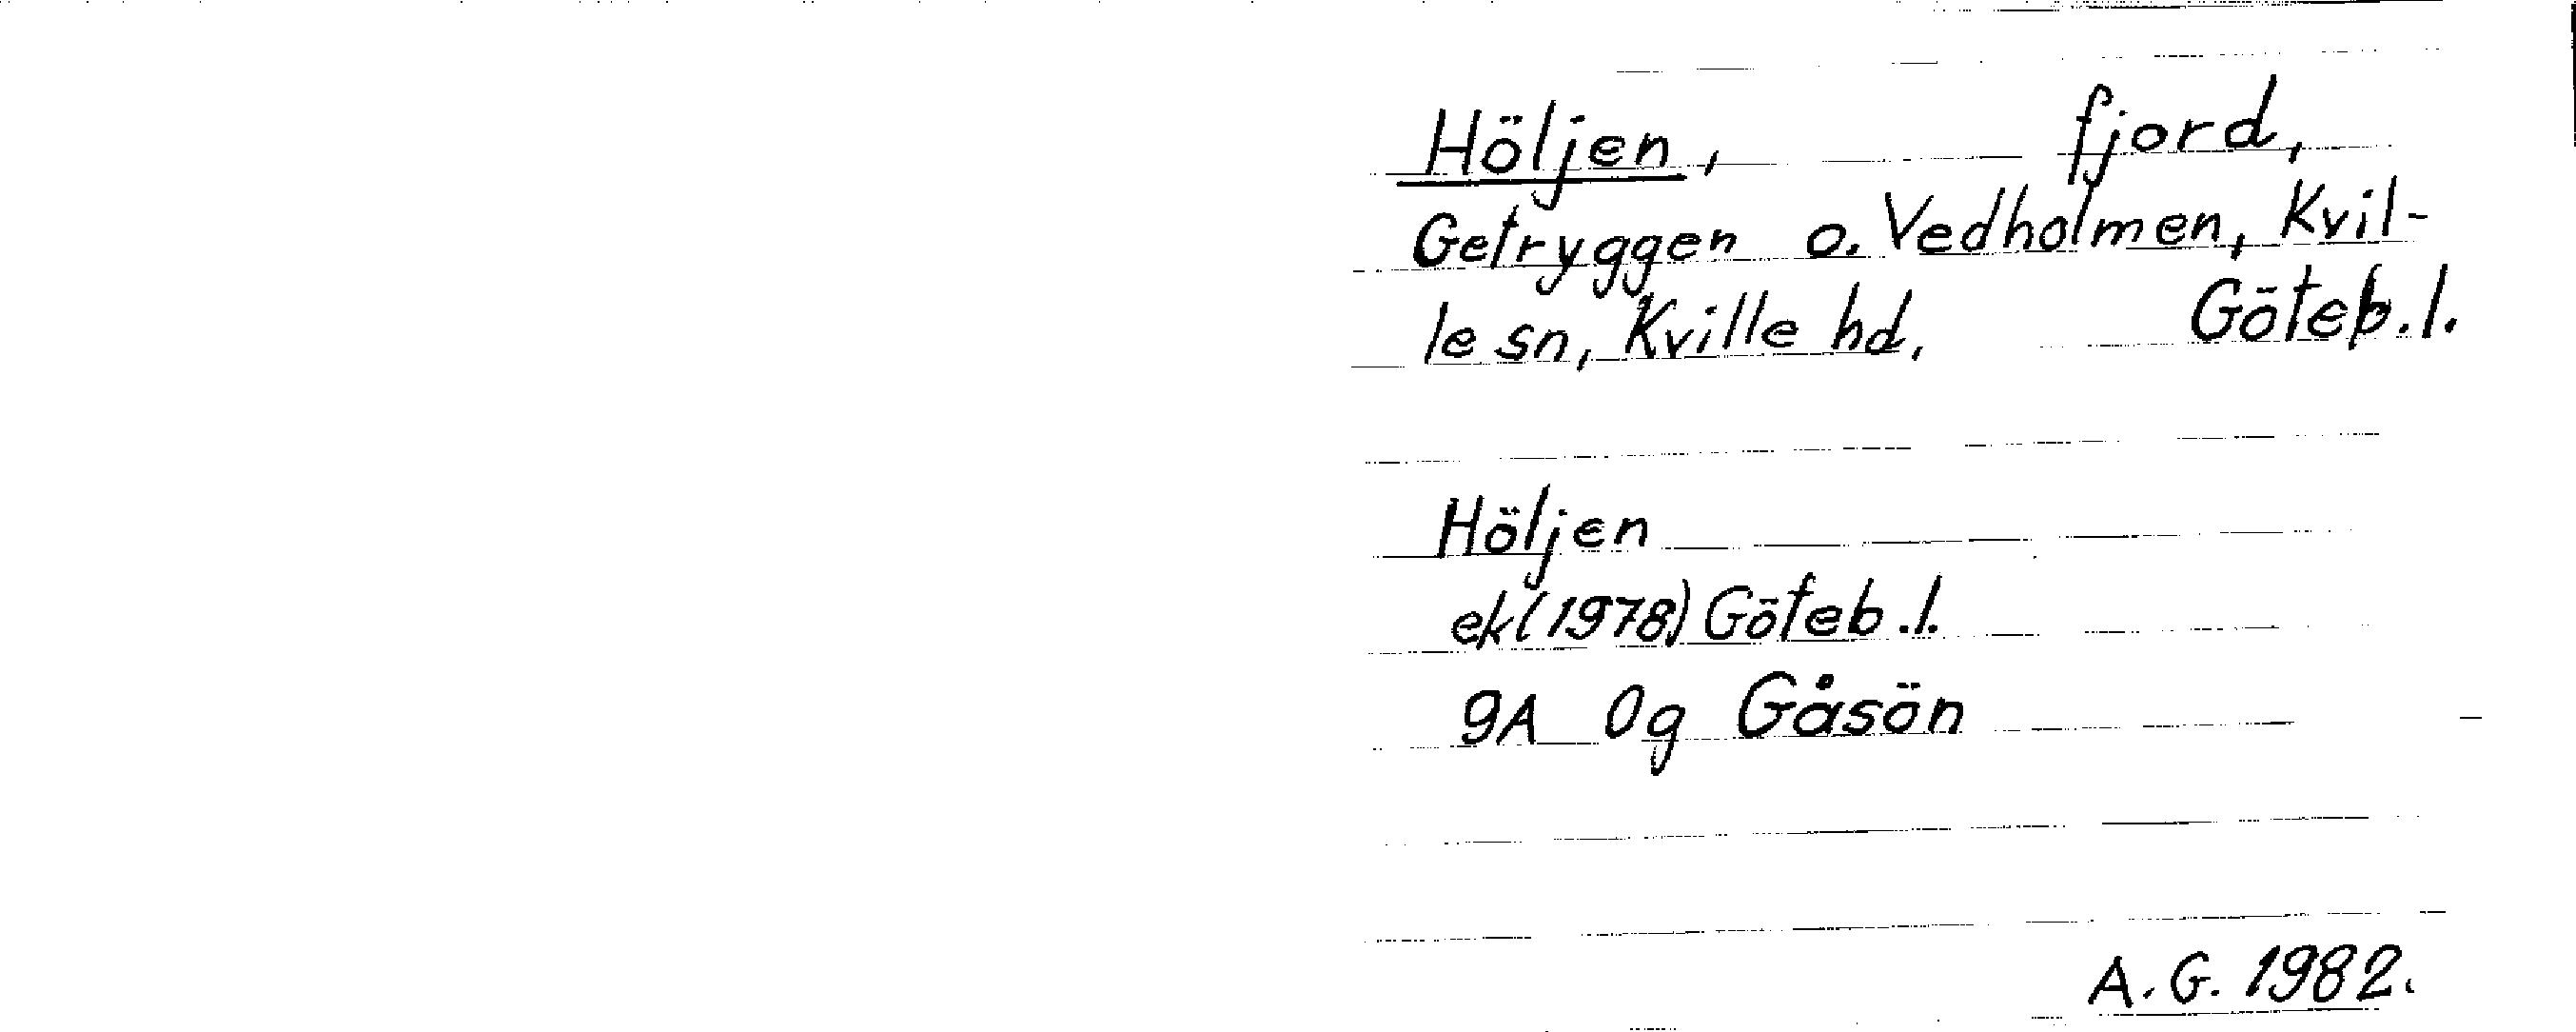 Höljen, fjord,
Getryggen o. Vedholmen, Kvil-
le sn, Kville hd, Göteb. l.
Höljen
ek (1978) Göteb. l.
9A 0g Gåsön
A. G. 1982.